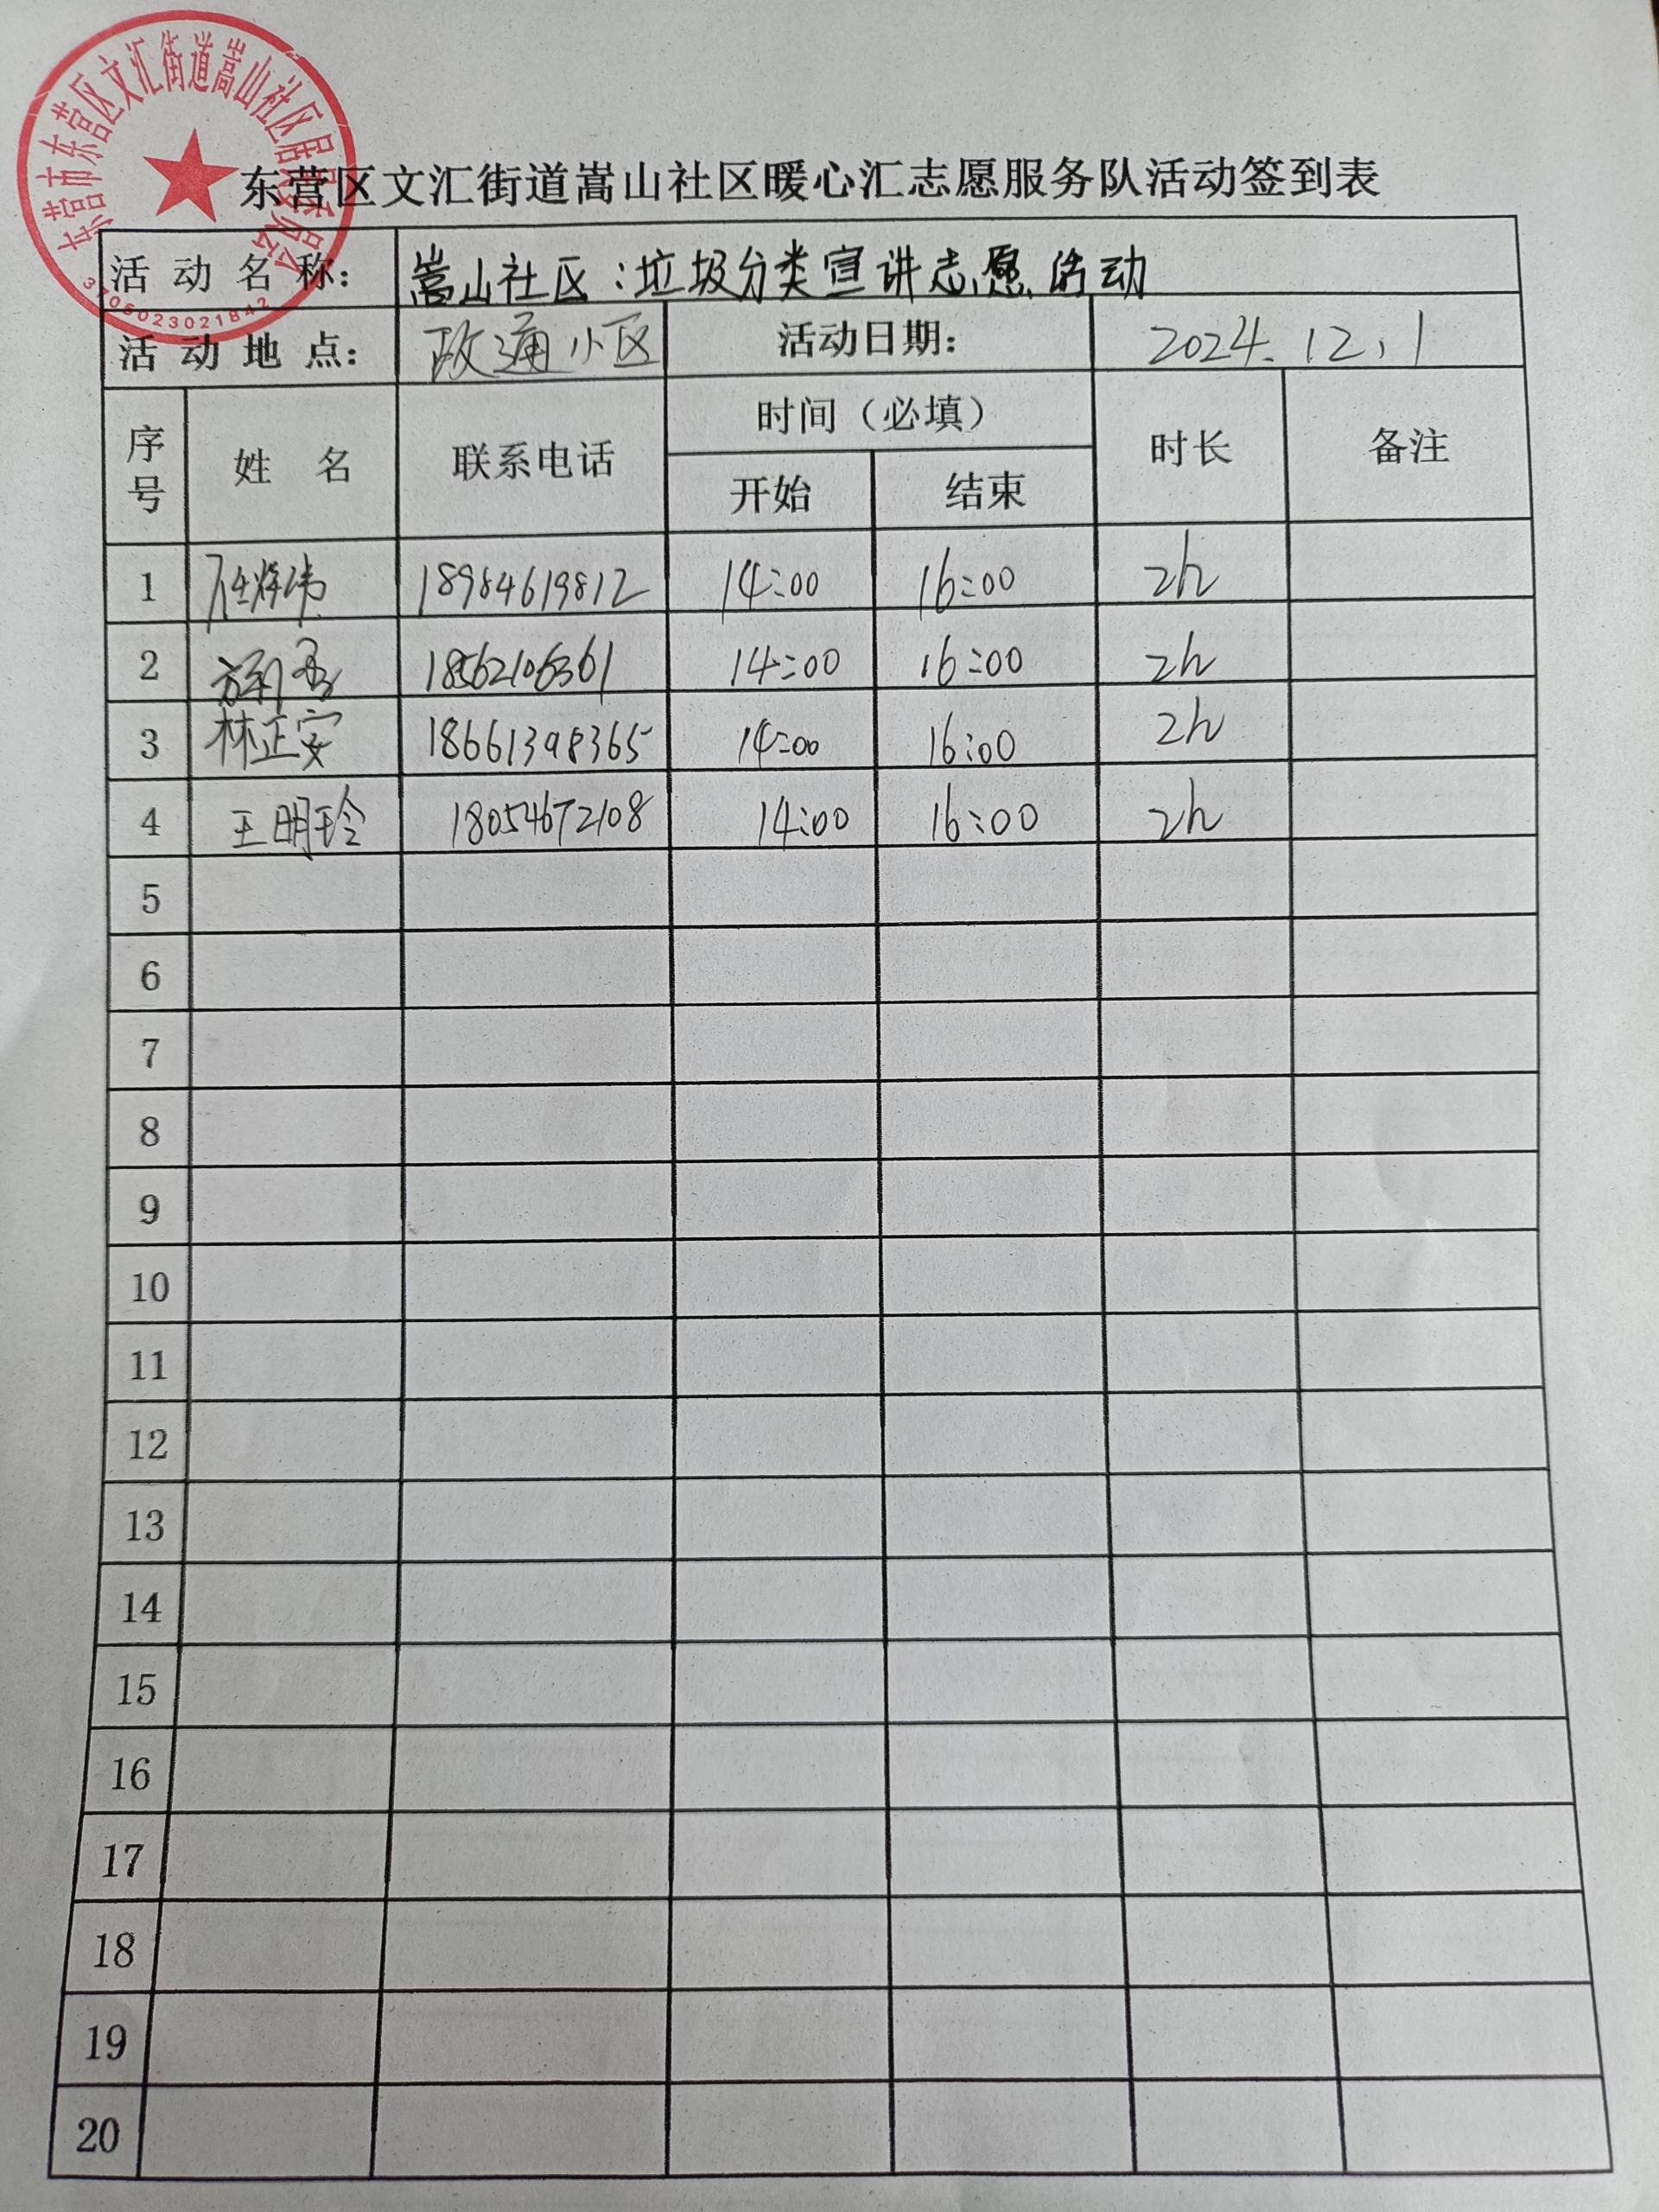 东营市东营区文汇街道嵩山社区居民委员会
3705023021842
东营区文汇街道嵩山社区暖心汇志愿服务队活动签到表
活动名称： 嵩山社区：垃圾分类宣讲志愿活动
活动地点： 政通小区 活动日期： 2024.12.1
序号 姓名 联系电话 时间（必填） 时长 备注
开始 结束
1 18984619812 14:00 16:00 2h
2 18562106361 14:00 16:00 2h
3 林正安 18661398365 14:00 16:00 2h
4 王明玲 18054672108 14:00 16:00 2h
5
6
7
8
9
10
11
12
13
14
15
16
17
18
19
20